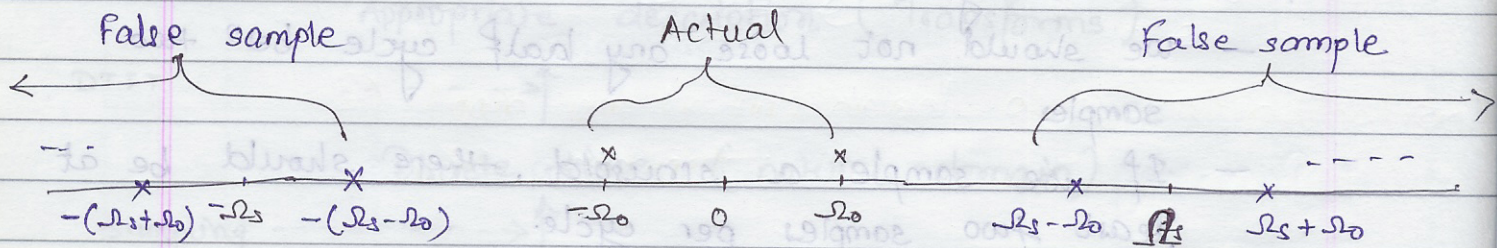 False sample Actual False sample
-(Ωs+Ω0) -Ωs -(Ωs-Ω0) -Ω0 0 Ω0 Ωs-Ω0 Ωs Ωs+Ω0